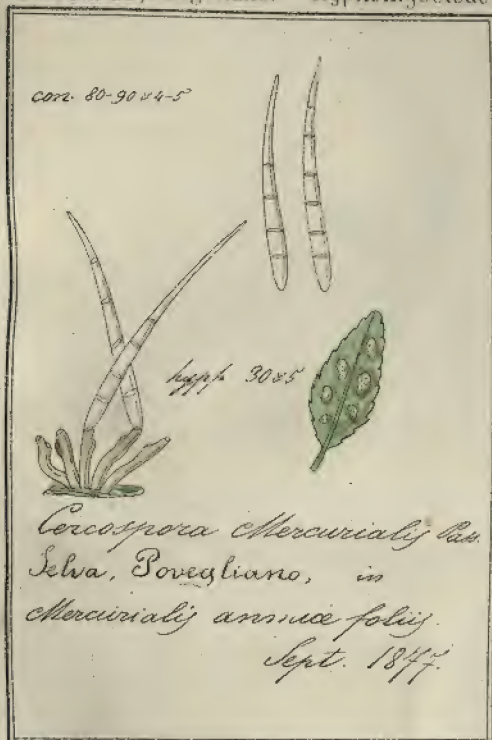 Hyphomyceteae
con. 80-90 x 4-5
hypf. 30 x 5
Cercospora Mercurialis Pass.
Selva, Povegliano, in
Mercurialis annuæ foliis.
Sept. 1877.